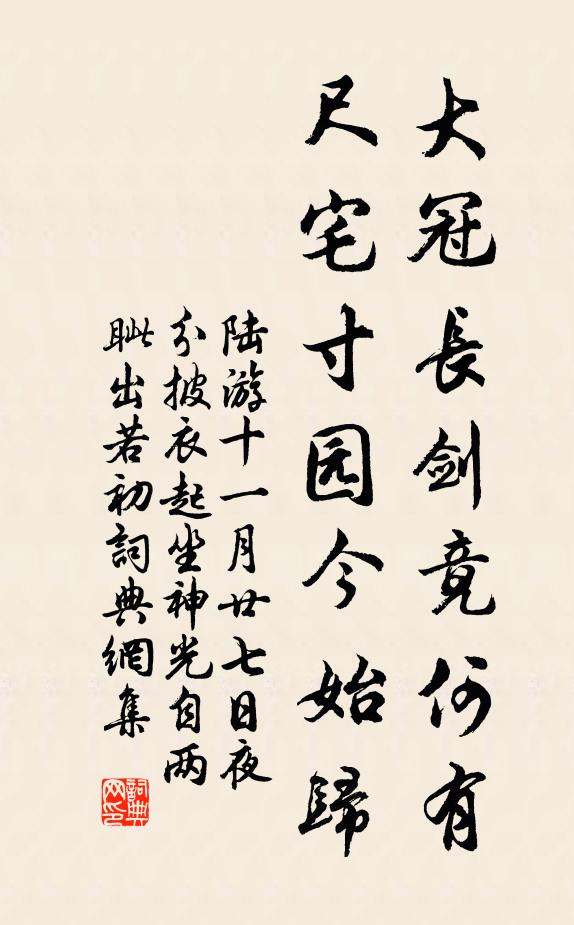 大冠長劍竟何有
尺宅寸园今始歸
陆游十一月廿七日夜
分披衣起坐神光自两
眦出若初詞典網集
詞典网印